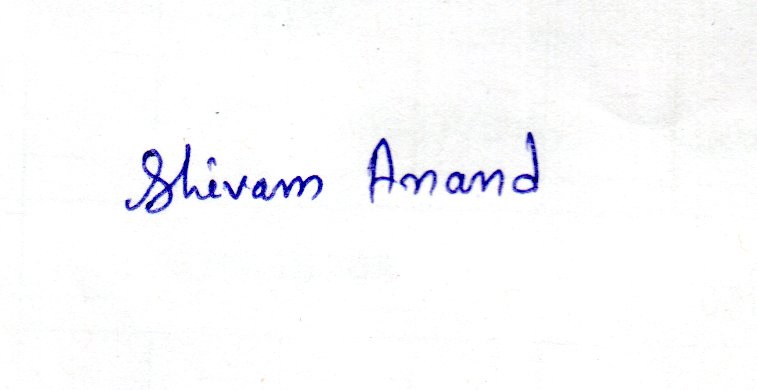 Shivam Anand